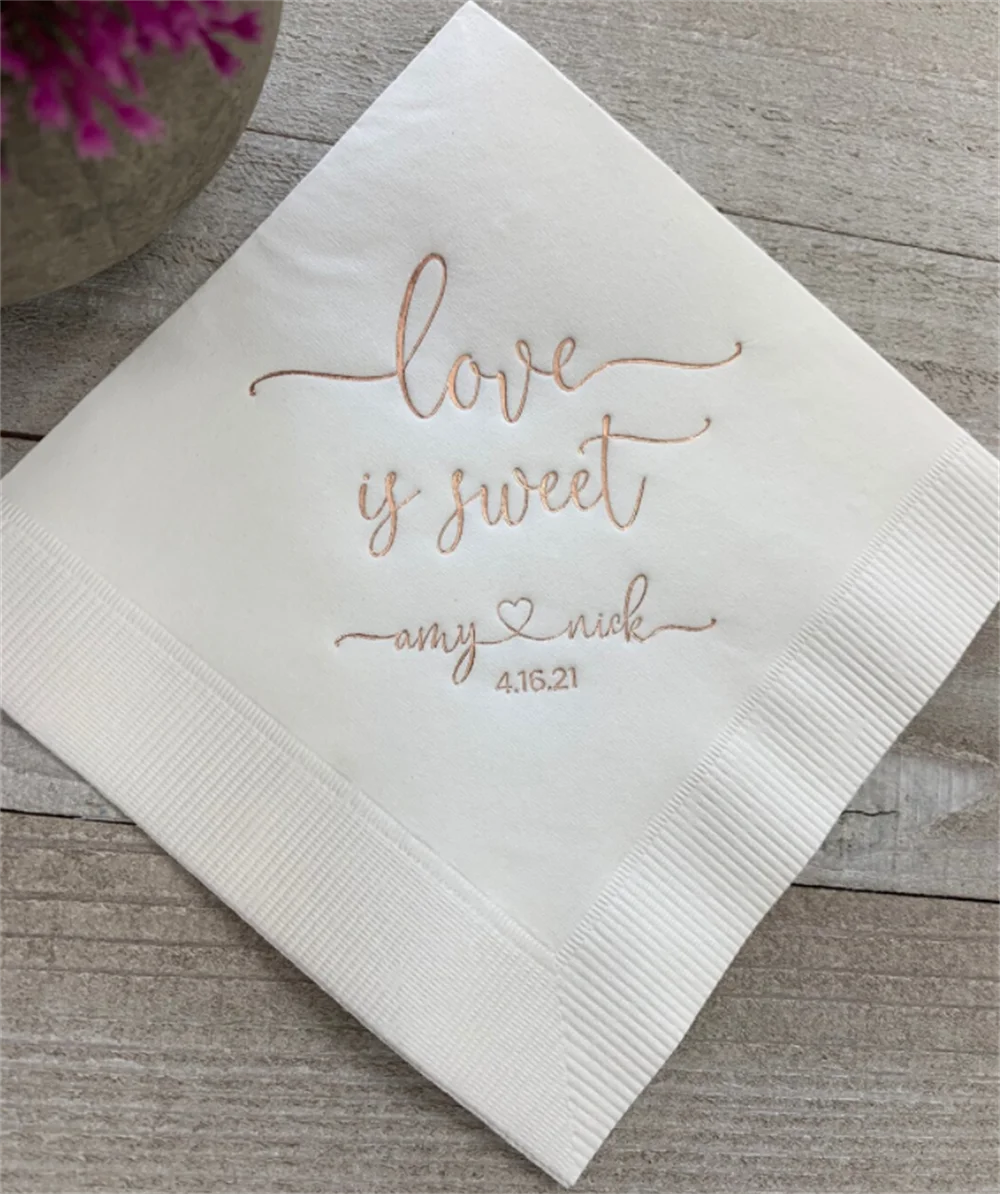 love
is sweet
amy ♡ nick
4.16.21